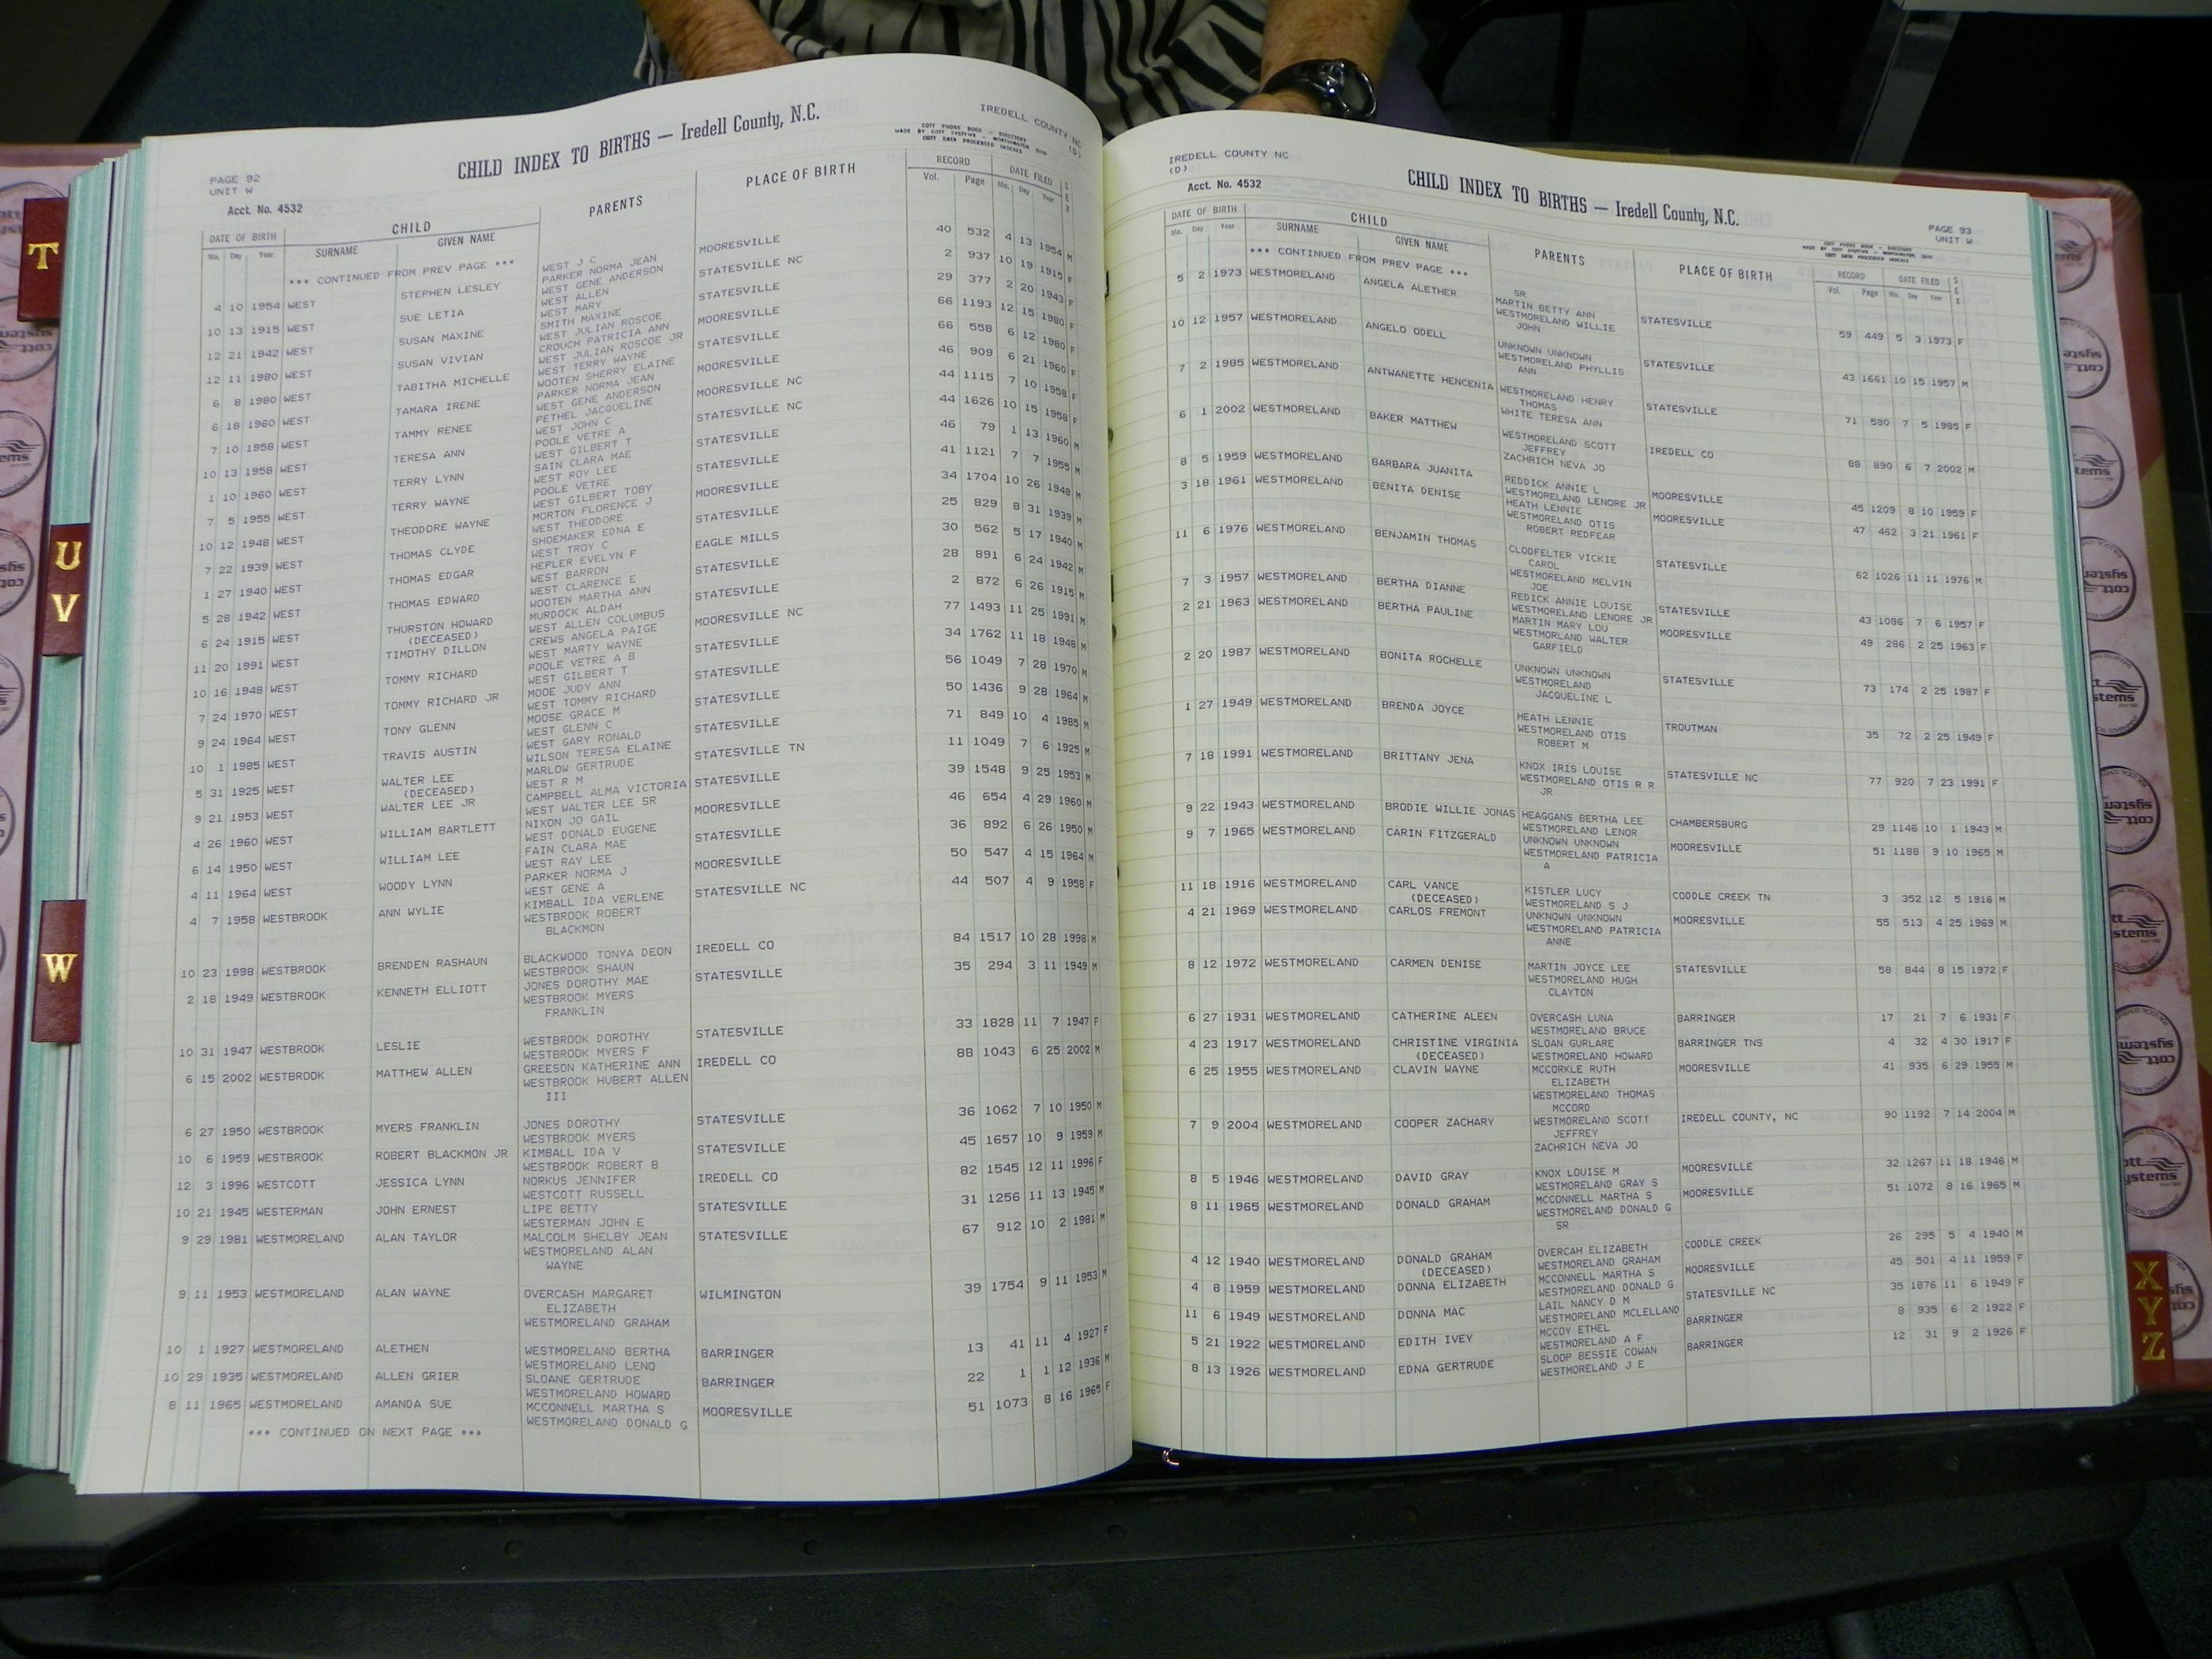 IREDELL COUNTY NC
(D)
CHILD INDEX TO BIRTHS — Iredell County, N.C.
COTT PHONE BOOK - DIRECTORY
MADE BY COTT SYSTEMS - WORTHINGTON, Ohio
COTT DATA PROCESSED INDEXES
PAGE 92
UNIT W
Acct. No. 4532
DATE OF BIRTH CHILD PARENTS PLACE OF BIRTH RECORD DATE FILED SEX
Mo. Day Year SURNAME GIVEN NAME Vol. Page Mo. Day Year
*** CONTINUED FROM PREV PAGE ***
WEST J C
4 10 1954 WEST STEPHEN LESLEY PARKER NORMA JEAN MOORESVILLE 40 532 4 13 1954 M
WEST GENE ANDERSON
10 13 1915 WEST SUE LETIA WEST ALLEN STATESVILLE NC 2 937 10 19 1915 F
WEST MARY
12 21 1942 WEST SUSAN MAXINE SMITH MAXINE STATESVILLE 29 377 2 20 1943 F
WEST JULIAN ROSCOE
12 11 1980 WEST SUSAN VIVIAN CROUCH PATRICIA ANN MOORESVILLE 66 1193 12 15 1980 F
WEST JULIAN ROSCOE JR
6 8 1980 WEST TABITHA MICHELLE WEST TERRY WAYNE STATESVILLE 66 558 6 12 1980 F
WOOTEN SHERRY ELAINE
6 18 1960 WEST TAMARA IRENE PARKER NORMA JEAN MOORESVILLE 46 909 6 21 1960 F
WEST GENE ANDERSON
7 10 1958 WEST TAMMY RENEE PETHEL JACQUELINE MOORESVILLE NC 44 1115 7 10 1958 F
WEST JOHN C
10 13 1958 WEST TERESA ANN POOLE VETRE A STATESVILLE NC 44 1626 10 15 1958 F
WEST GILBERT T
1 10 1960 WEST TERRY LYNN SAIN CLARA MAE STATESVILLE 46 79 1 13 1960 M
WEST ROY LEE
7 5 1955 WEST TERRY WAYNE POOLE VETRE STATESVILLE 41 1121 7 7 1955 M
WEST GILBERT TOBY
10 12 1948 WEST THEODORE WAYNE MORTON FLORENCE J MOORESVILLE 34 1704 10 26 1948 M
WEST THEODORE
7 22 1939 WEST THOMAS CLYDE SHOEMAKER EDNA E STATESVILLE 25 829 8 31 1939 M
WEST TROY C
1 27 1940 WEST THOMAS EDGAR HEPLER EVELYN F EAGLE MILLS 30 562 5 17 1940 M
WEST BARRON
5 28 1942 WEST THOMAS EDWARD WEST CLARENCE E STATESVILLE 28 891 6 24 1942 M
WOOTEN MARTHA ANN
6 24 1915 WEST THURSTON HOWARD MURDOCK ALDAH STATESVILLE 2 872 6 26 1915 M
(DECEASED) WEST ALLEN COLUMBUS
11 20 1991 WEST TIMOTHY DILLON CREWS ANGELA PAIGE MOORESVILLE NC 77 1493 11 25 1991 M
WEST MARTY WAYNE
10 16 1948 WEST TOMMY RICHARD POOLE VETRE A B STATESVILLE 34 1762 11 18 1948 M
WEST GILBERT T
7 24 1970 WEST TOMMY RICHARD JR MOOE JUDY ANN STATESVILLE 56 1049 7 28 1970 M
WEST TOMMY RICHARD
9 24 1964 WEST TONY GLENN MOOSE GRACE M STATESVILLE 50 1436 9 28 1964 M
WEST GLENN C
10 1 1985 WEST TRAVIS AUSTIN WEST GARY RONALD STATESVILLE 71 849 10 4 1985 M
WILSON TERESA ELAINE
5 31 1925 WEST WALTER LEE MARLOW GERTRUDE STATESVILLE TN 11 1049 7 6 1925 M
(DECEASED) WEST R M
9 21 1953 WEST WALTER LEE JR CAMPBELL ALMA VICTORIA STATESVILLE 39 1548 9 25 1953 M
WEST WALTER LEE SR
4 26 1960 WEST WILLIAM BARTLETT NIXON JO GAIL MOORESVILLE 46 654 4 29 1960 M
WEST DONALD EUGENE
6 14 1950 WEST WILLIAM LEE FAIN CLARA MAE STATESVILLE 36 892 6 26 1950 M
WEST RAY LEE
4 11 1964 WEST WOODY LYNN PARKER NORMA J MOORESVILLE 50 547 4 15 1964 M
WEST GENE A
4 7 1958 WESTBROOK ANN WYLIE KIMBALL IDA VERLENE STATESVILLE NC 44 507 4 9 1958 F
WESTBROOK ROBERT
BLACKMON
10 23 1998 WESTBROOK BRENDEN RASHAUN BLACKWOOD TONYA DEON IREDELL CO 84 1517 10 28 1998 M
WESTBROOK SHAUN
2 18 1949 WESTBROOK KENNETH ELLIOTT JONES DOROTHY MAE STATESVILLE 35 294 3 11 1949 M
WESTBROOK MYERS
FRANKLIN
10 31 1947 WESTBROOK LESLIE WESTBROOK DOROTHY STATESVILLE 33 1828 11 7 1947 F
WESTBROOK MYERS F
6 15 2002 WESTBROOK MATTHEW ALLEN GREESON KATHERINE ANN IREDELL CO 88 1043 6 25 2002 M
WESTBROOK HUBERT ALLEN
III
6 27 1950 WESTBROOK MYERS FRANKLIN JONES DOROTHY STATESVILLE 36 1062 7 10 1950 M
WESTBROOK MYERS
10 6 1959 WESTBROOK ROBERT BLACKMON JR KIMBALL IDA V STATESVILLE 45 1657 10 9 1959 M
WESTBROOK ROBERT B
12 3 1996 WESTCOTT JESSICA LYNN NORKUS JENNIFER IREDELL CO 82 1545 12 11 1996 F
WESTCOTT RUSSELL
10 21 1945 WESTERMAN JOHN ERNEST LIPE BETTY STATESVILLE 31 1256 11 13 1945 M
WESTERMAN JOHN E
9 29 1981 WESTMORELAND ALAN TAYLOR MALCOLM SHELBY JEAN STATESVILLE 67 912 10 2 1981 M
WESTMORELAND ALAN
WAYNE
9 11 1953 WESTMORELAND ALAN WAYNE OVERCASH MARGARET WILMINGTON 39 1754 9 11 1953 M
ELIZABETH
WESTMORELAND GRAHAM
10 1 1927 WESTMORELAND ALETHEN WESTMORELAND BERTHA BARRINGER 13 41 11 4 1927 F
WESTMORELAND LENO
10 29 1935 WESTMORELAND ALLEN GRIER SLOANE GERTRUDE BARRINGER 22 1 1 12 1936 M
WESTMORELAND HOWARD
8 11 1965 WESTMORELAND AMANDA SUE MCCONNELL MARTHA S MOORESVILLE 51 1073 8 16 1965 F
WESTMORELAND DONALD G
*** CONTINUED ON NEXT PAGE ***
IREDELL COUNTY NC
(D)
Acct. No. 4532
CHILD INDEX TO BIRTHS — Iredell County, N.C.
PAGE 93
UNIT W
COTT PHONE BOOK - DIRECTORY
MADE BY COTT SYSTEMS - WORTHINGTON, Ohio
COTT DATA PROCESSED INDEXES
DATE OF BIRTH CHILD PARENTS PLACE OF BIRTH RECORD DATE FILED SEX
Mo. Day Year SURNAME GIVEN NAME Vol. Page Mo. Day Year
*** CONTINUED FROM PREV PAGE ***
SR
5 2 1973 WESTMORELAND ANGELA ALETHER MARTIN BETTY ANN STATESVILLE 59 449 5 3 1973 F
WESTMORELAND WILLIE
JOHN
10 12 1957 WESTMORELAND ANGELO ODELL UNKNOWN UNKNOWN STATESVILLE 43 1661 10 15 1957 M
WESTMORELAND PHYLLIS
ANN
7 2 1985 WESTMORELAND ANTWANETTE HENCENIA WESTMORELAND HENRY STATESVILLE 71 580 7 5 1985 F
THOMAS
WHITE TERESA ANN
6 1 2002 WESTMORELAND BAKER MATTHEW WESTMORELAND SCOTT IREDELL CO 88 890 6 7 2002 M
JEFFREY
ZACHRICH NEVA JO
8 5 1959 WESTMORELAND BARBARA JUANITA REDDICK ANNIE L MOORESVILLE 45 1209 8 10 1959 F
WESTMORELAND LENORE JR
3 18 1961 WESTMORELAND BENITA DENISE HEATH LENNIE MOORESVILLE 47 462 3 21 1961 F
WESTMORELAND OTIS
ROBERT REDFEAR
11 6 1976 WESTMORELAND BENJAMIN THOMAS CLODFELTER VICKIE STATESVILLE 62 1026 11 11 1976 M
CAROL
WESTMORELAND MELVIN
JOE
7 3 1957 WESTMORELAND BERTHA DIANNE REDICK ANNIE LOUISE STATESVILLE 43 1086 7 6 1957 F
WESTMORELAND LENORE JR
2 21 1963 WESTMORELAND BERTHA PAULINE MARTIN MARY LOU MOORESVILLE 49 286 2 25 1963 F
WESTMORLAND WALTER
GARFIELD
2 20 1987 WESTMORELAND BONITA ROCHELLE UNKNOWN UNKNOWN STATESVILLE 73 174 2 25 1987 F
WESTMORELAND
JACQUELINE L
1 27 1949 WESTMORELAND BRENDA JOYCE HEATH LENNIE TROUTMAN 35 72 2 25 1949 F
WESTMORELAND OTIS
ROBERT M
7 18 1991 WESTMORELAND BRITTANY JENA KNOX IRIS LOUISE STATESVILLE NC 77 920 7 23 1991 F
WESTMORELAND OTIS R R
JR
9 22 1943 WESTMORELAND BRODIE WILLIE JONAS HEAGGANS BERTHA LEE CHAMBERSBURG 29 1146 10 1 1943 M
WESTMORELAND LENOR
9 7 1965 WESTMORELAND CARIN FITZGERALD UNKNOWN UNKNOWN MOORESVILLE 51 1188 9 10 1965 M
WESTMORELAND PATRICIA
A
11 18 1916 WESTMORELAND CARL VANCE KISTLER LUCY CODDLE CREEK TN 3 352 12 5 1916 M
(DECEASED) WESTMORELAND S J
4 21 1969 WESTMORELAND CARLOS FREMONT UNKNOWN UNKNOWN MOORESVILLE 55 513 4 25 1969 M
WESTMORELAND PATRICIA
ANNE
8 12 1972 WESTMORELAND CARMEN DENISE MARTIN JOYCE LEE STATESVILLE 58 844 8 15 1972 F
WESTMORELAND HUGH
CLAYTON
6 27 1931 WESTMORELAND CATHERINE ALEEN OVERCASH LUNA BARRINGER 17 21 7 6 1931 F
WESTMORELAND BRUCE
4 23 1917 WESTMORELAND CHRISTINE VIRGINIA SLOAN GURLARE BARRINGER TNS 4 32 4 30 1917 F
(DECEASED) WESTMORELAND HOWARD
6 25 1955 WESTMORELAND CLAVIN WAYNE MCCORKLE RUTH MOORESVILLE 41 935 6 29 1955 M
ELIZABETH
WESTMORELAND THOMAS
MCCORD
7 9 2004 WESTMORELAND COOPER ZACHARY WESTMORELAND SCOTT IREDELL COUNTY, NC 90 1192 7 14 2004 M
JEFFREY
ZACHRICH NEVA JO
8 5 1946 WESTMORELAND DAVID GRAY KNOX LOUISE M MOORESVILLE 32 1267 11 18 1946 M
WESTMORELAND GRAY S
8 11 1965 WESTMORELAND DONALD GRAHAM MCCONNELL MARTHA S MOORESVILLE 51 1072 8 16 1965 M
WESTMORELAND DONALD G
SR
4 12 1940 WESTMORELAND DONALD GRAHAM OVERCAH ELIZABETH CODDLE CREEK 26 295 5 4 1940 M
(DECEASED) WESTMORELAND GRAHAM
4 8 1959 WESTMORELAND DONNA ELIZABETH MCCONNELL MARTHA S MOORESVILLE 45 501 4 11 1959 F
WESTMORELAND DONALD G
11 6 1949 WESTMORELAND DONNA MAC LAIL NANCY D M STATESVILLE NC 35 1876 11 6 1949 F
WESTMORELAND MCLELLAND
5 21 1922 WESTMORELAND EDITH IVEY MCCOY ETHEL BARRINGER 8 935 6 2 1922 F
WESTMORELAND A F
8 13 1926 WESTMORELAND EDNA GERTRUDE SLOOP BESSIE COWAN BARRINGER 12 31 9 2 1926 F
WESTMORELAND J E
T
U
V
W
X
Y
Z